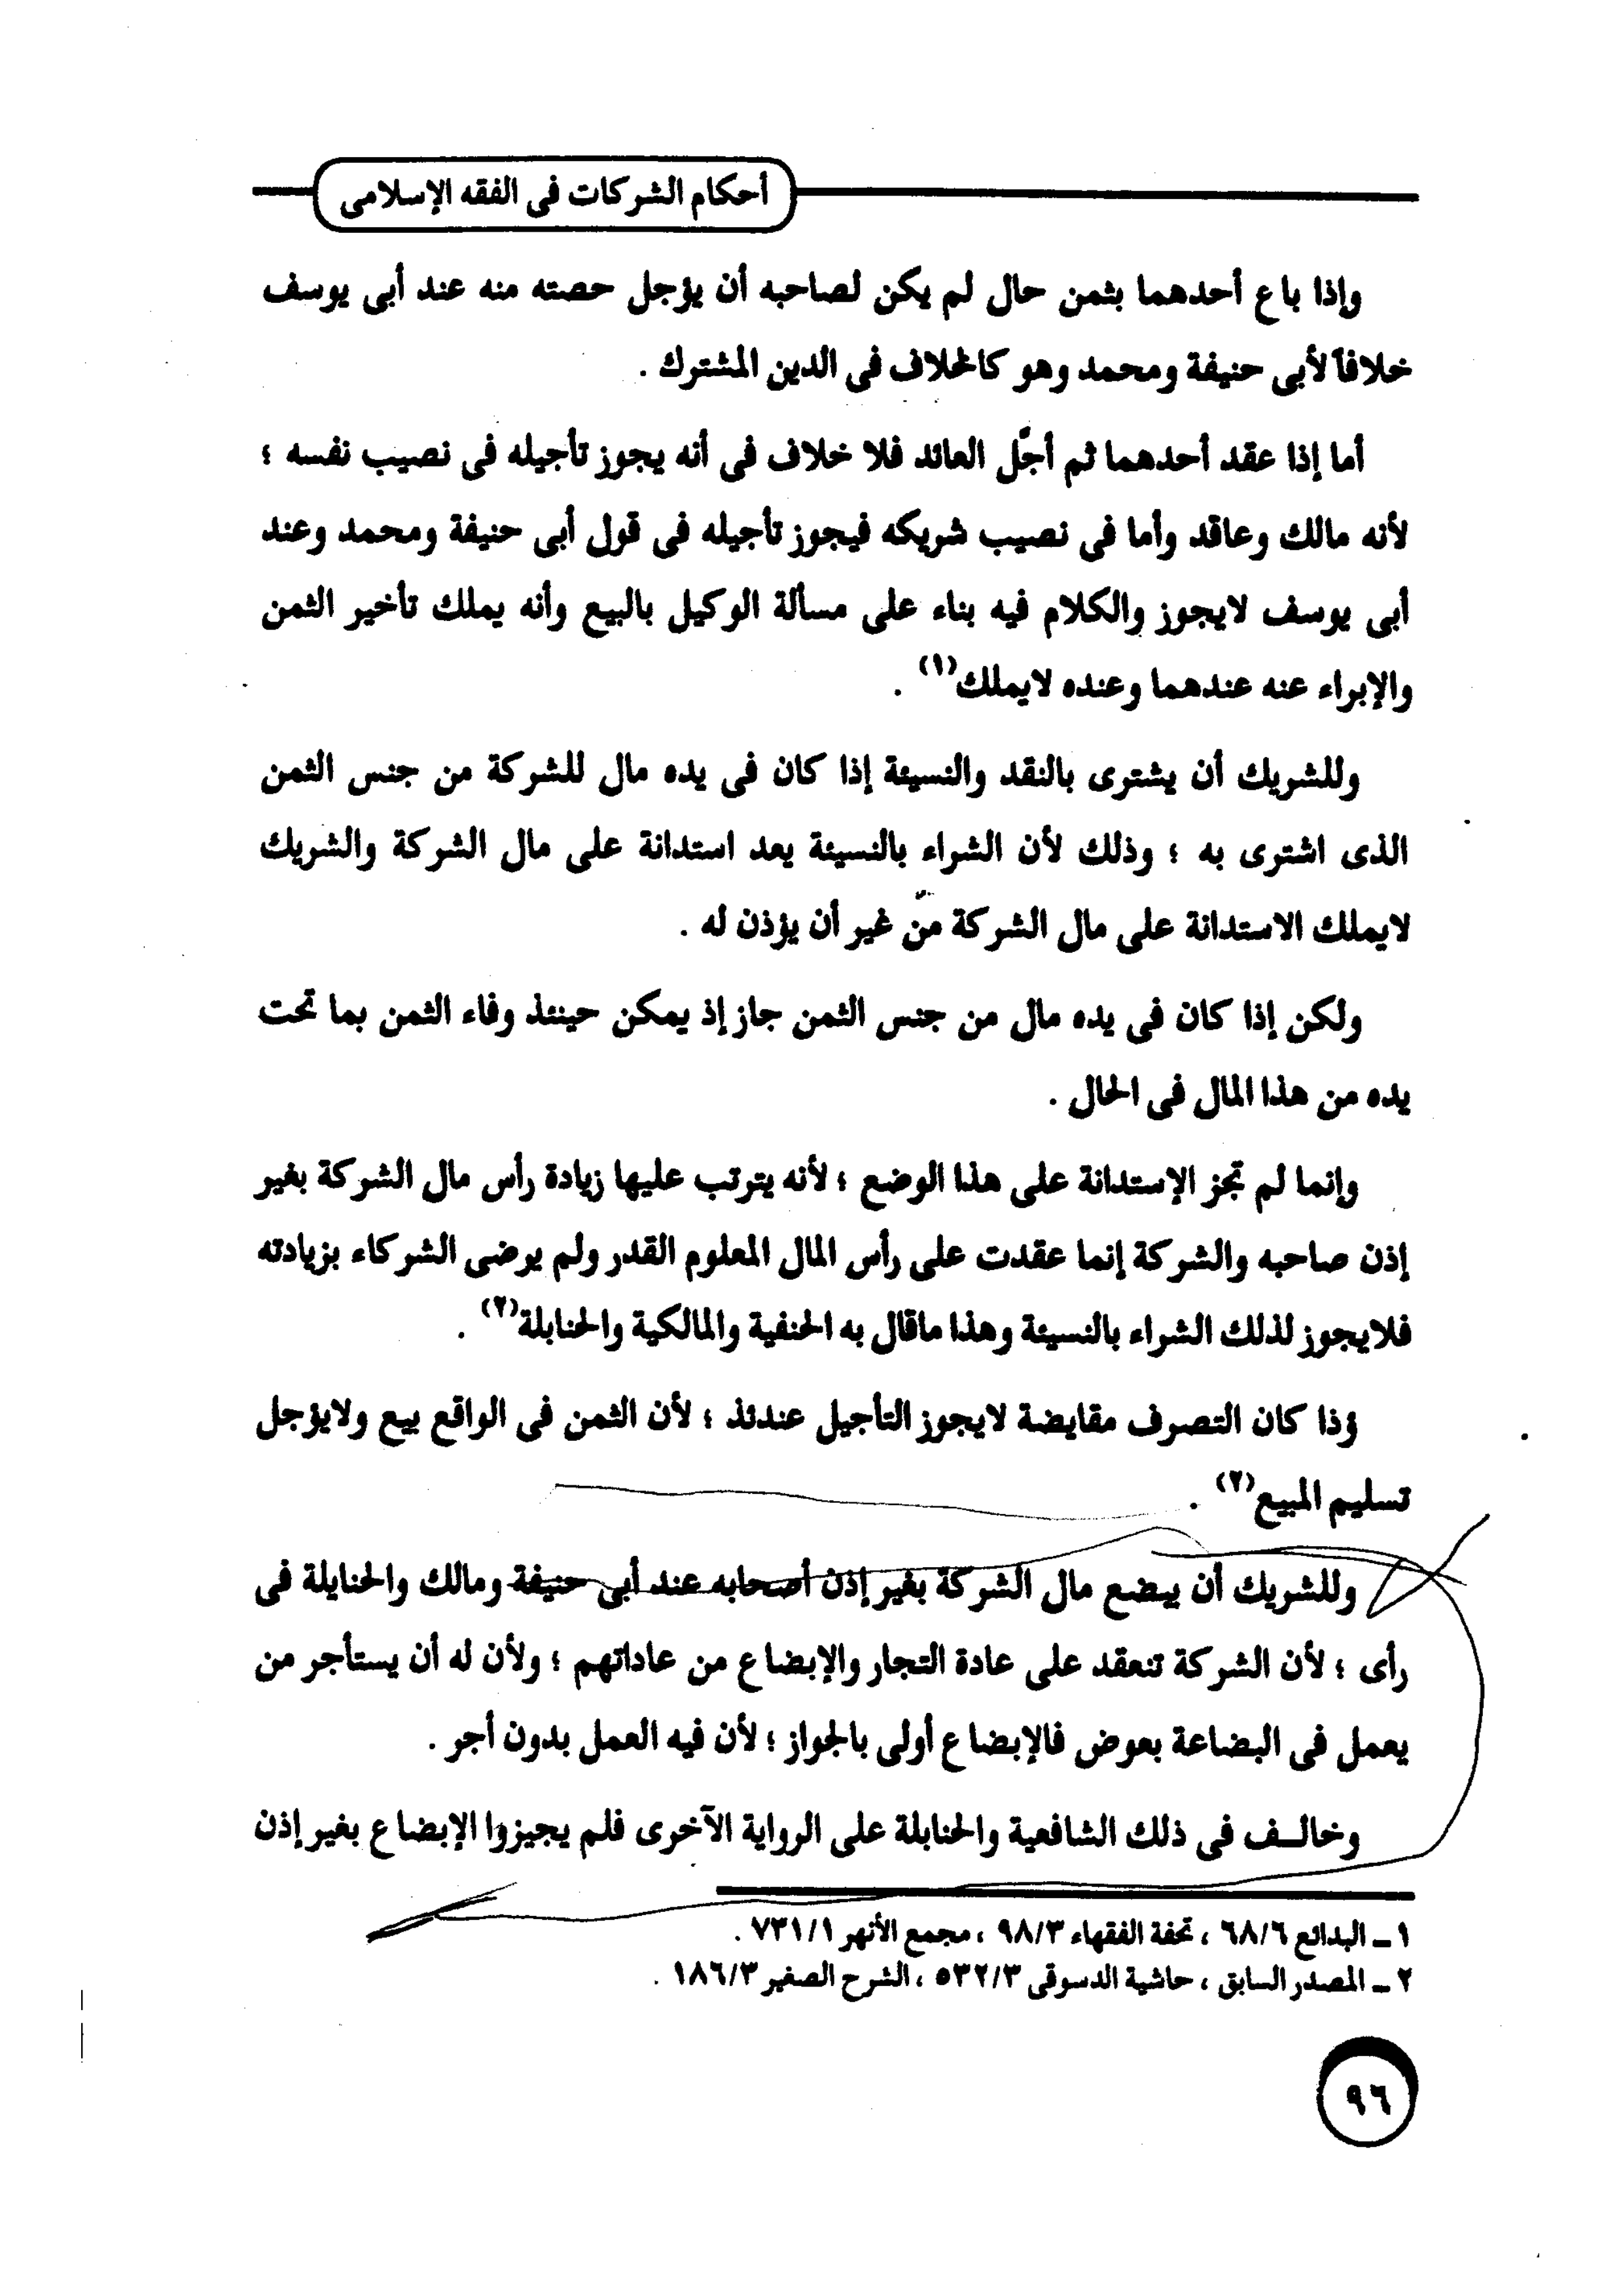 أحكام الشركات فى الفقه الإسلامى
وإذا باع أحدهما بثمن حال لم يكن لصاحبه أن يؤجل حصته منه عند أبى يوسف
خلافاً لأبى حنيفة ومحمد وهو كالخلاف فى الدين المشترك .
أما إذا عقد أحدهما ثم أجّل العائد فلا خلاف فى أنه يجوز تأجيله فى نصيب نفسه ؛
لأنه مالك وعاقد وأما فى نصيب شريكه فيجوز تأجيله فى قول أبى حنيفة ومحمد وعند
أبى يوسف لايجوز والكلام فيه بناء على مسألة الوكيل بالبيع وأنه يملك تأخير الثمن
والإبراء عنه عندهما وعنده لايملك(١) .
وللشريك أن يشترى بالنقد والنسيئة إذا كان فى يده مال للشركة من جنس الثمن
الذى اشترى به ؛ وذلك لأن الشراء بالنسيئة يعد استدانة على مال الشركة والشريك
لايملك الاستدانة على مال الشركة من غير أن يؤذن له .
ولكن إذا كان فى يده مال من جنس الثمن جاز إذ يمكن حينئذ وفاء الثمن بما تحت
يده من هذا المال فى الحال .
وإنما لم تجز الإستدانة على هذا الوضع ؛ لأنه يترتب عليها زيادة رأس مال الشركة بغير
إذن صاحبه والشركة إنما عقدت على رأس المال المعلوم القدر ولم يرضى الشركاء بزيادته
فلايجوز لذلك الشراء بالنسيئة وهذا ماقال به الحنفية والمالكية والحنابلة(٢) .
ؤذا كان التصرف مقايضة لايجوز التأجيل عندئذ ؛ لأن الثمن فى الواقع بيع ولايؤجل
تسليم المبيع(٢) .
وللشريك أن يبضع مال الشركة بغير إذن أصحابه عند أبى حنيفة ومالك والحنايلة فى
رأى ؛ لأن الشركة تنعقد على عادة التجار والإبضاع من عاداتهم ؛ ولأن له أن يستأجر من
يعمل فى البضاعة بعوض فالإبضاع أولى بالجواز ؛ لأن فيه العمل بدون أجر .
وخالف فى ذلك الشافعية والحنابلة على الرواية الآخرى فلم يجيزوا الإبضاع بغير إذن
١ ـ البدائع ٦٨/٦ ، تحفة الفقهاء ٩٨/٣ ، مجمع الأنهر ٧٣١/١ .
٢ ـ المصدر السابق ، حاشية الدسوقى ٥٣٢/٣ ، الشرح الصغير ١٨٦/٣ .
٩٦